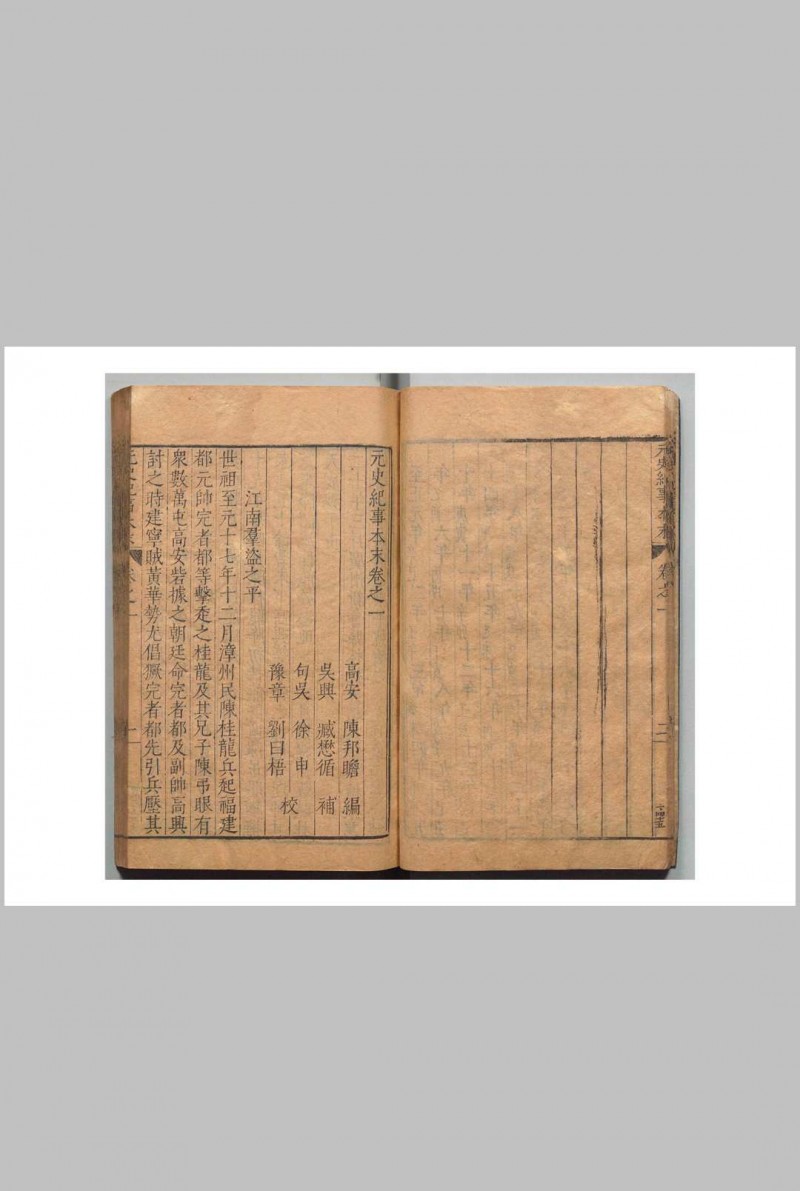 元史紀事本末 卷之一
元史紀事本末卷之一
高安 陳邦瞻 編
吳興 臧懋循 補
句吳 徐申
豫章 劉曰梧 校
江南羣盜之平
世祖至元十七年十二月漳州民陳桂龍兵起福建
都元帥完者都等擊走之桂龍及其兄子陳弔眼有
衆數萬屯高安砦據之朝廷命完者都及副帥高興
討之時建寧賊黃華勢尤倡獗完者都先引兵壓其